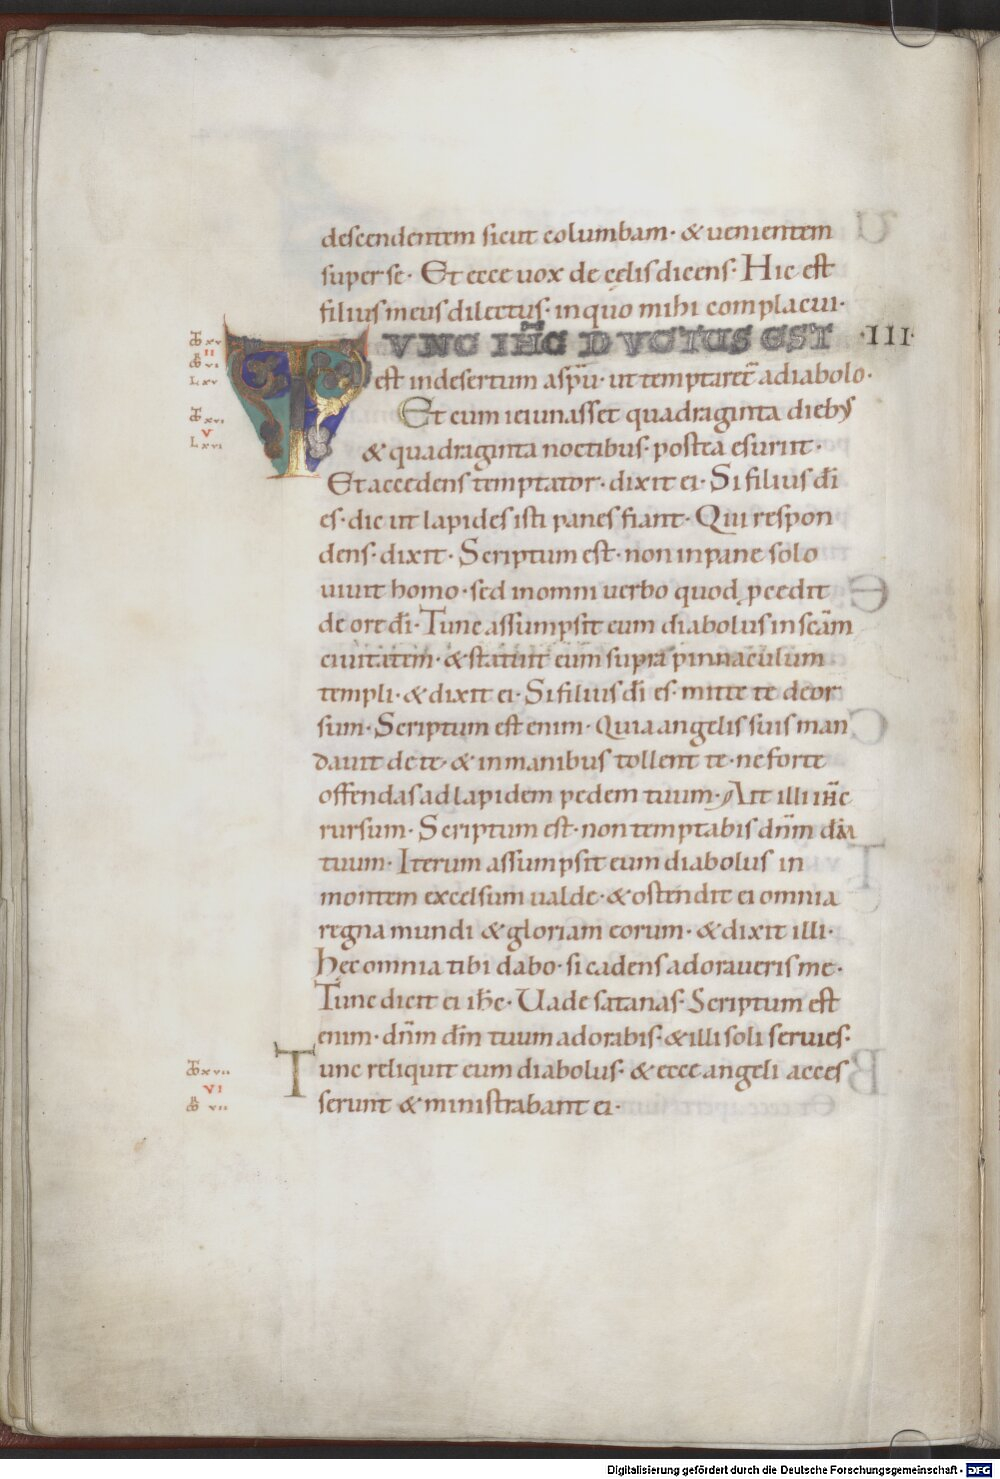 descendentem sicut columbam· & uenientem
super se· Et ecce uox de cęlis dicens· Hic est
filius meus dilectus· in quo mihi complacui·
TVNC IH̄C DVCTUS EST ·III·
est in desertum a sp̄u· ut temptaret̄ a diabolo·
Et cum ieiunasset quadraginta dieb;
& quadraginta noctibus· postea esuriit·
Et accedens temptator· dixit ei· Si filius dī
es· dic ut lapides isti panes fiant· Qui respon
dens· dixit· Scriptum est· non in pane solo
uiuit homo· sed in omni uerbo quod ꝓcedit
de ore dī· Tunc assumpsit eum diabolus in scām
ciuitatem· & statuit eum supra pinnaculum
templi· & dixit ei· Si filius dī es· mitte te deor
sum· Scriptum est enim· Quia angelis suis man
dauit de te· & in manibus tollent te· ne forte
offendas ad lapidem pedem tuum· Ait illi ih̄c
rursum· Scriptum est· non temptabis dn̄m dm̄
tuum· Iterum assumpsit eum diabolus in
montem excelsum ualde· & ostendit ei omnia
regna mundi & gloriam eorum· & dixit illi·
Hęc omnia tibi dabo· si cadens adoraueris me·
Tunc dicit ei ih̄c· Uade satanas· Scriptum est
enim· dn̄m dm̄ tuum adorabis· & illi soli seruies·
Tunc reliquit eum diabolus· & ecce angeli acces
serunt & ministrabant ei·
xv
II
vi
L xv
xvi
V
L xvi
xvii
VI
vii
Digitalisierung gefördert durch die Deutsche Forschungsgemeinschaft - DFG